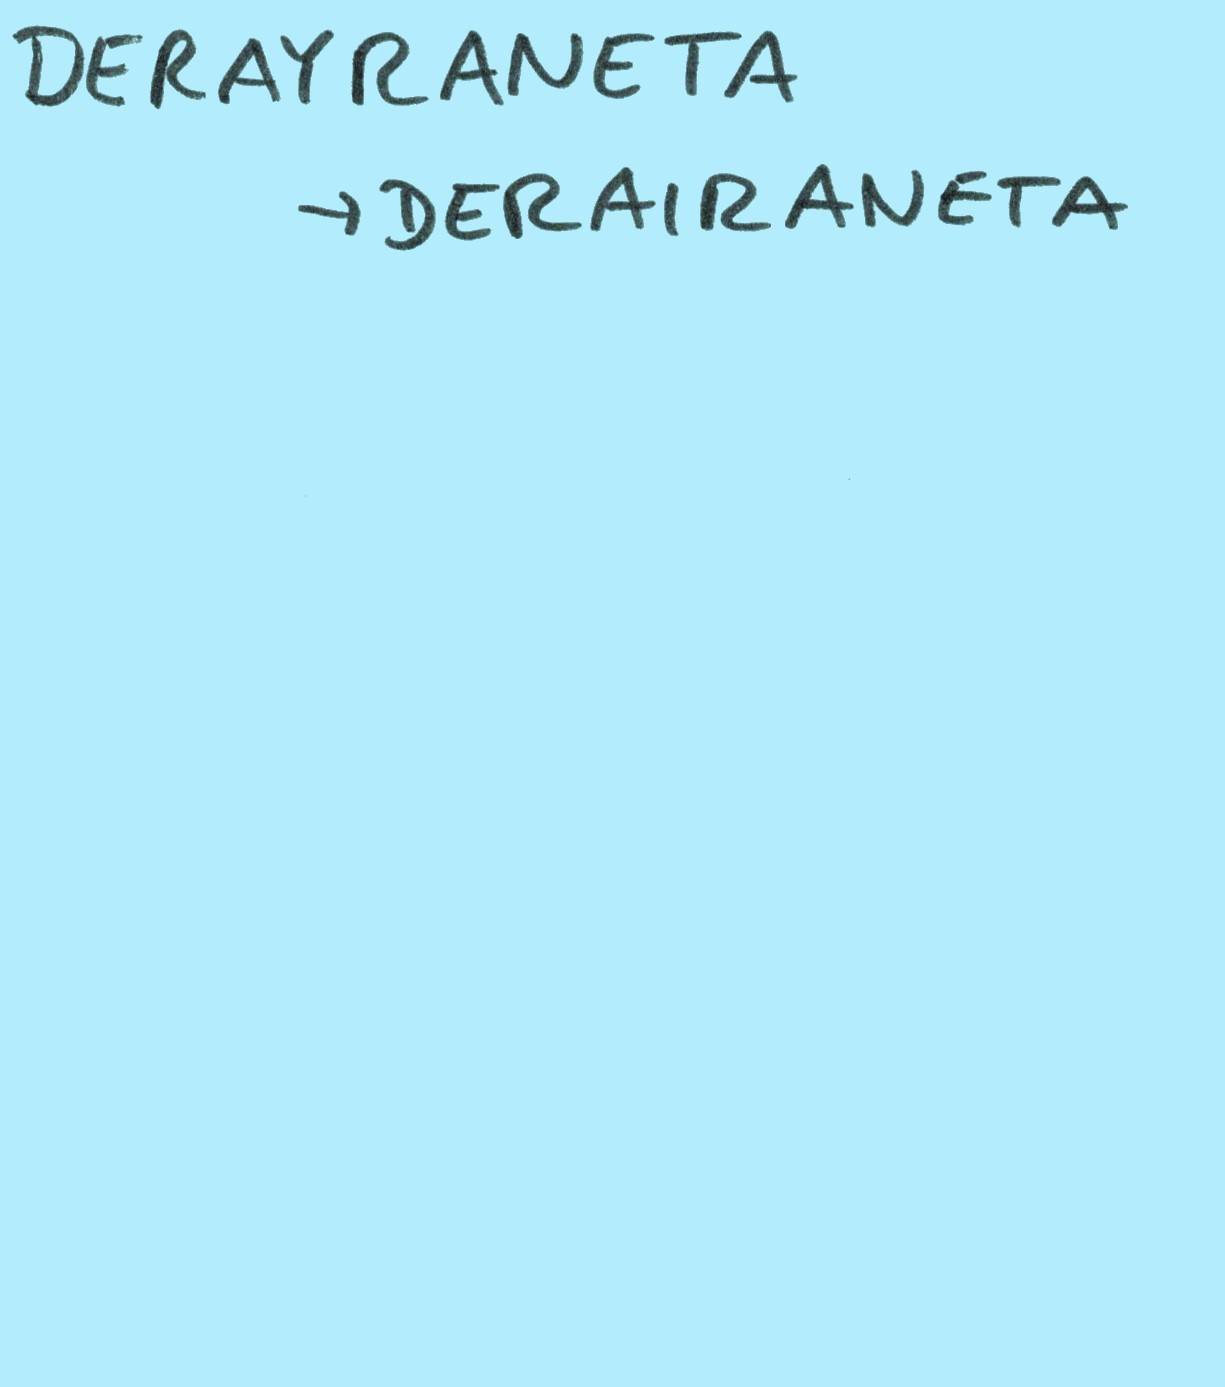 DERAYRANETA
→DERAIRANETA